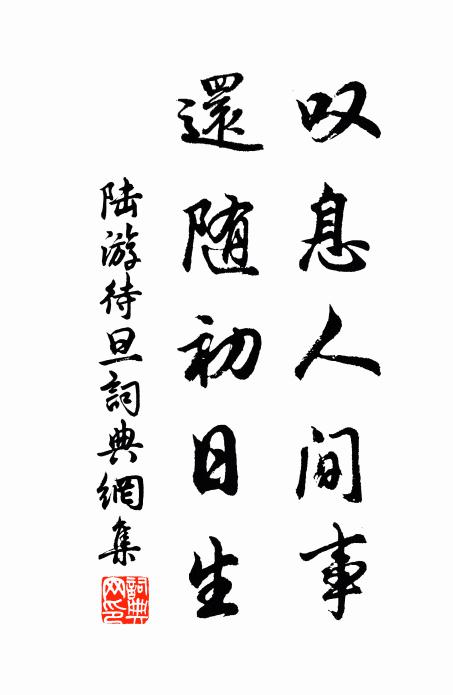 叹息人间事
還随初日生
陆游待旦詞典網集
詞典网印